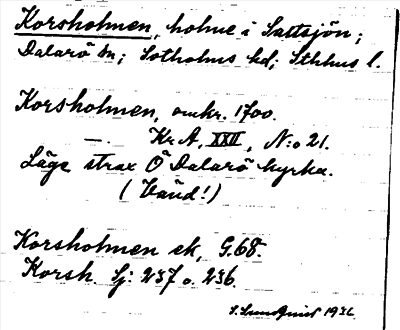 Korsholmen, holme i Saltsjön;
Dalarö sn; Sotholms hd; Sthlms l.
Korsholmen, omkr. 1700.
— Kr A, XXII, N:o 21.
Läge strax Ö Dalarö kyrka.
(Vänd!)
Korsholmen ek, G.68.
Korsh. Sj: 237 o. 236.
S. Lundqvist 1936